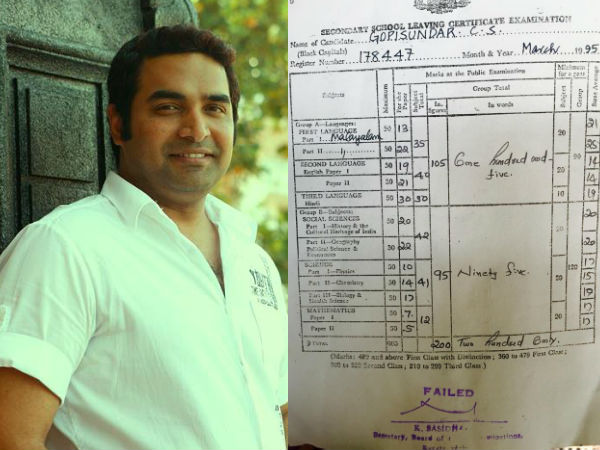 SECONDARY SCHOOL LEAVING CERTIFICATE EXAMINATION
Name of Candidate GOPISUNDAR. C. S.
(Block Capitals)
Register Number 178447 Month & Year March 1995
Subjects
Maximum
For the Paper
Subject Total
Marks at the Public Examination
Group Total
In figures
In words
Minimum for a pass
Subject
Group
State Average
Group A—Languages:
FIRST LANGUAGE
Part I Malayalam 50 13 21
Part II 50 22 35 20
SECOND LANGUAGE
English Paper I 50 19 105 One hundred and five. 14
Paper II 50 21 40 20
THIRD LANGUAGE
Hindi 50 30 30 10
Group B—Subjects:
SOCIAL SCIENCES
Part I—History & the Cultural Heritage of India 50 20 20
Part II—Geography Political Science & Economics 50 22 42 20 20
SCIENCE
Part I—Physics 50 10 17
Part II—Chemistry 50 14 41 95 Ninety five. 15
Part III—Biology & Health Science 50 17
MATHEMATICS
Paper I 50 7
Paper II 50 5 12 20
TOTAL 200 Two Hundred Only.
(Marks: and above First Class with Distinction; 360 to 479 First Class;
Second Class; 210 to 299 Third Class.)
FAILED
Secretary, Board of